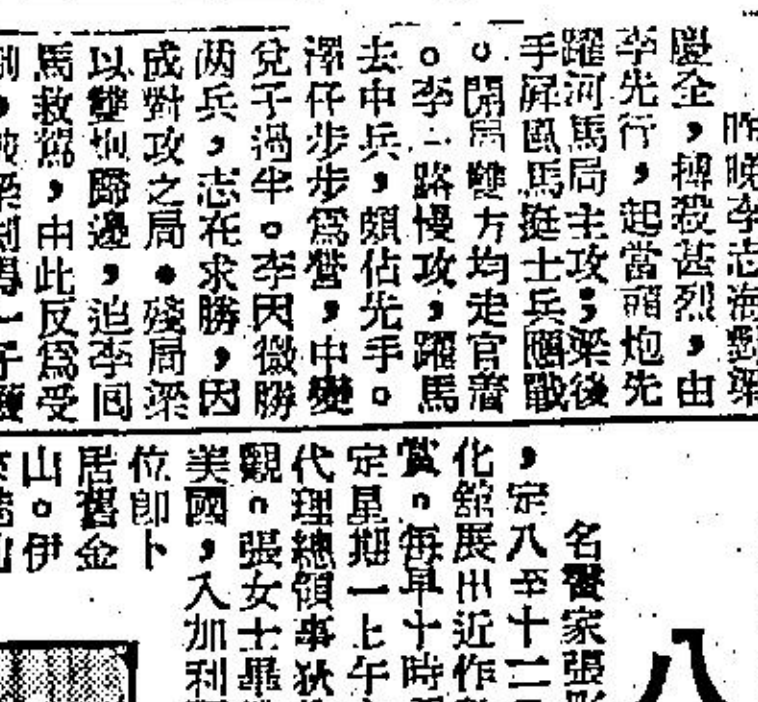 昨晚李志海對梁
慶全，搏殺甚烈，由
李光行，起當頭炮先
躍河馬局主攻；梁後
手屏風馬挺士兵應戰
。開局雙方均走官着
。李一路慢攻，躍馬
去中兵，頗佔先手。
澤仔步步爲營，中變
兌子過半。李因微勝
兩兵，志在求勝，因
成對攻之局。殘局梁
以雙炮歸邊，迫李回
馬救駕，由此反爲受
八
名畫家張
，定八至十二
化館展出近作
賞。每早十時
定星期一上午
代理總領事狄
觀。張女士畢
美國，入加利
位即卜
居舊金
山。伊